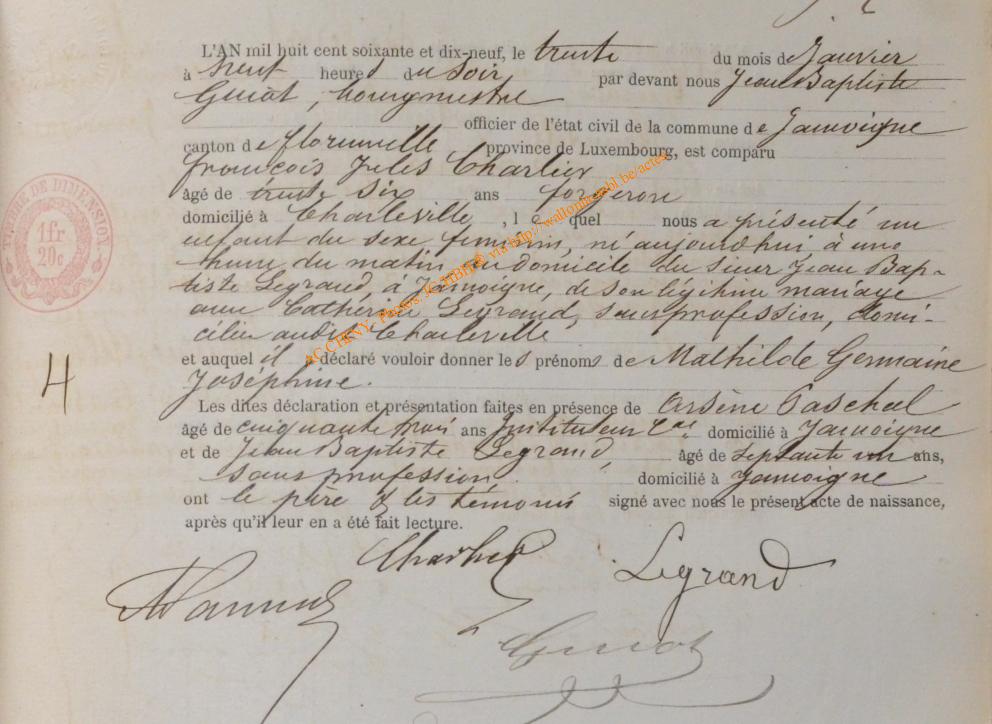 L'AN mil huit cent soixante et dix-neuf, le trente du mois de Janvier
à neuf heures du soir par devant nous Jean Baptiste
Guiot, bourgmestre
officier de l'état civil de la commune de Jamoigne
canton de florenville province de Luxembourg, est comparu
françois Jules Charlier
âgé de trente six ans forgeron
domicilié à Charleville, lequel nous a présenté un
enfant du sexe feminin, né aujourd'hui à une
heure du matin, au domicile du sieur Jean Bap-
tiste Legrand, à Jamoigne, de son légitime mariage
avec Cathérine Legrand, sans profession, domi-
ciliée audit Charleville
et auquel il a déclaré vouloir donner les prénoms de Mathilde Germaine
Joséphine.
Les dites déclaration et présentation faites en présence de Arsène Paschal
âgé de cinquante trois ans Instituteur domicilié à Jamoigne
et de Jean Baptiste Legrand, âgé de septante un ans,
sans profession domicilié à Jamoigne
ont le père & les témoins signé avec nous le présent acte de naissance,
après qu'il leur en a été fait lecture.
Charlier
Legrand
Guiot
4
TIMBRE DE DIMENSION
1fr
20c
via http://wallonica.bl.be/actes